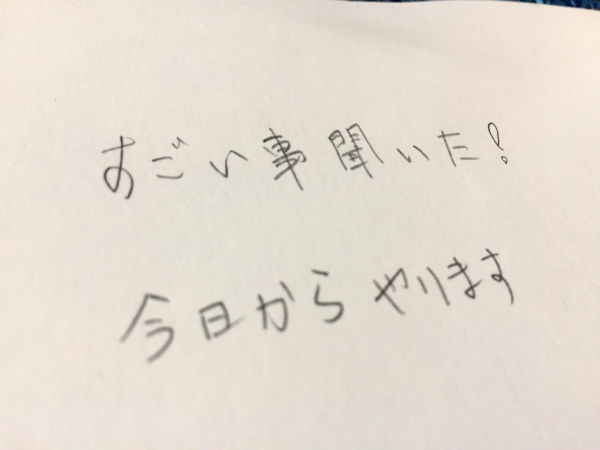 すごい事聞いた!
今日からやります